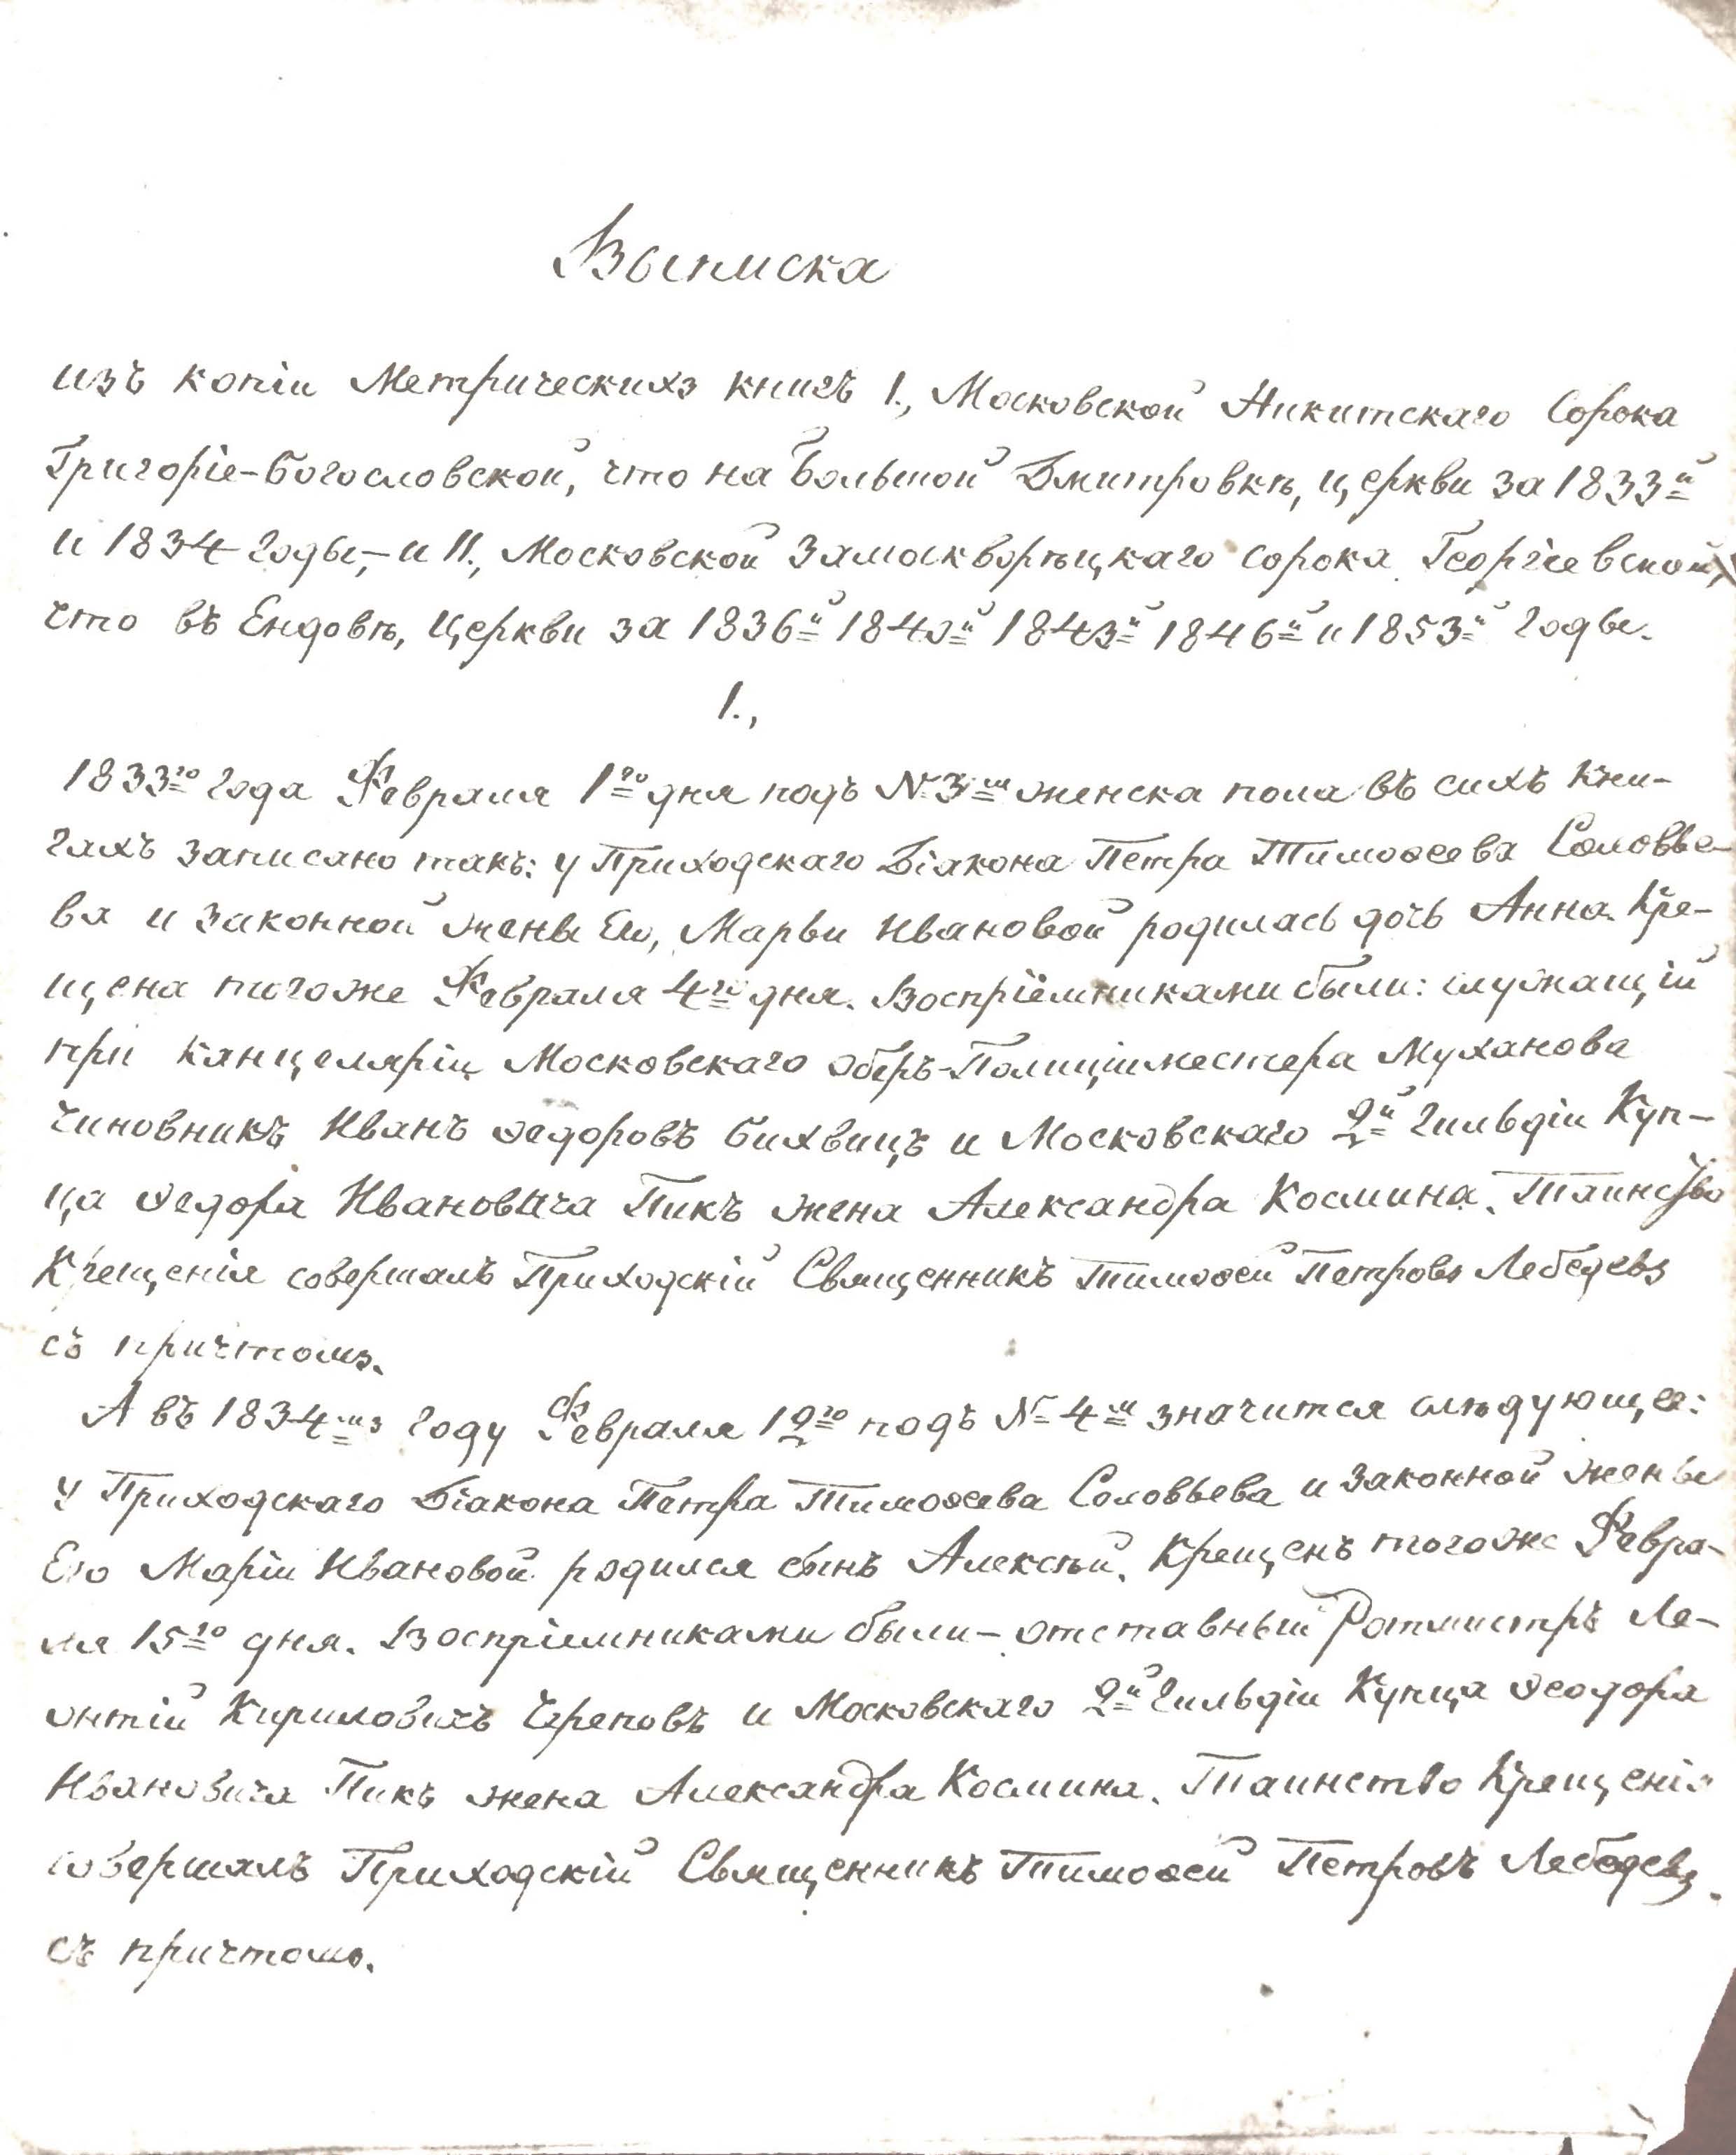 Выписка
изъ копiи Метрическихъ книгъ I., Московской Никитскаго Сорока
Григорiе-Богословской, что на Большой Дмитровкѣ, церкви за 1833й
и 1834 годы,- и II., Московской Замоскворѣцкаго сорока Георгiевской,
что въ Ендовѣ, Церкви за 1836й 1840й 1843й 1846й и 1853й годы.
I.,
1833го года Февраля 1го дня подъ № 3м женска пола въ сихъ кни-
гахъ записано такъ: у Приходскаго Дiакона Петра Тимоѳеева Соловье-
ва и законной жены Его, Марьи Ивановой родилась дочь Анна. Кре-
щена тогоже Февраля 4го дня. Воспрiемниками были: служащiй
при канцелярiи Московскаго Оберъ-Полицiйместера Муханова
чиновникъ Иванъ Ѳедоровъ Бихвицъ и Московскаго 2й гильдiи Куп-
ца Ѳедора Ивановича Пикъ жена Александра Космина. Таинство
Крещенiя совершалъ Приходскiй Священникъ Тимоѳей Петровъ Лебедевъ
съ причтомъ.
А въ 1834мъ году Февраля 12го подъ № 4м значится слѣдующее:
У Приходскаго Дiакона Петра Тимоѳеева Соловьева и законной жены
Его Марiи Ивановой родился сынъ Алексѣй. Крещенъ тогоже Февра-
ля 15го дня. Воспрiемниками были- отставный Ротмистръ Ле-
онтiй Кириловичъ Череповъ и Московскаго 2й гильдiи Купца Ѳеодора
Ивановича Пикъ жена Александра Космина. Таинство Крещенiя
совершалъ Приходскiй Священникъ Тимоѳей Петровъ Лебедевъ.
съ причтомъ.